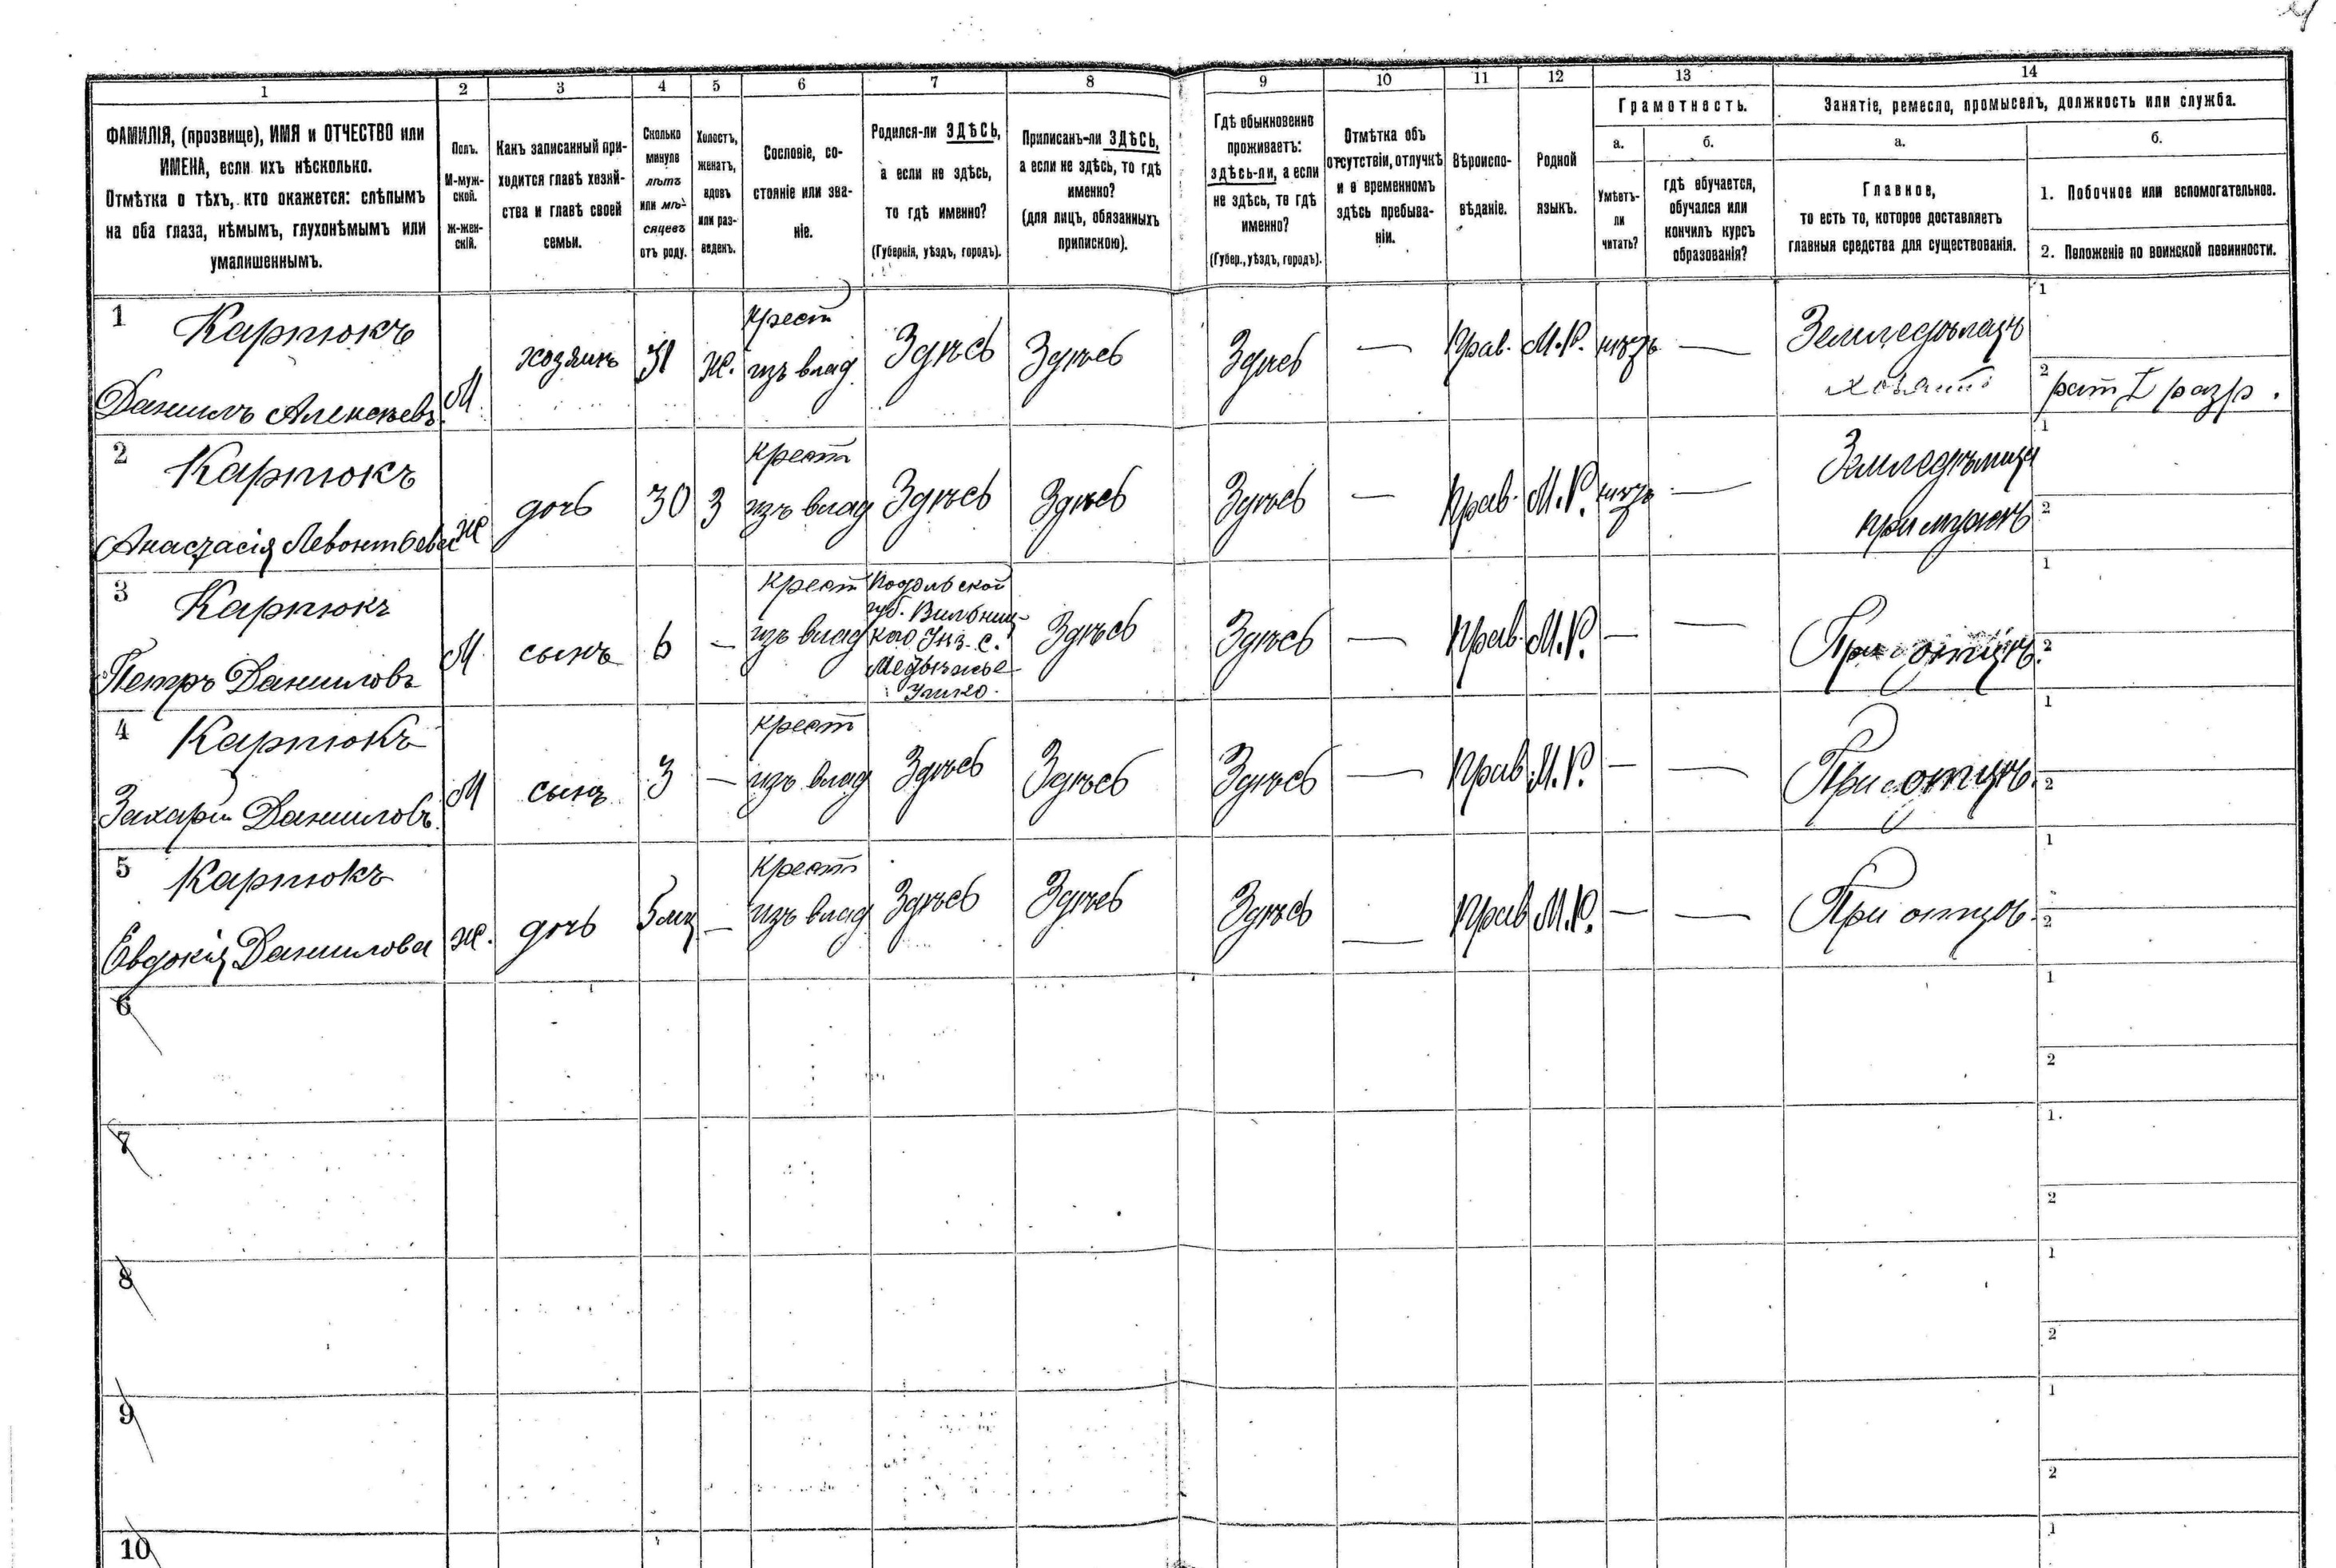 1 2 3 4 5 6 7 8 9 10 11 12 13 14
ФАМИЛІЯ, (прозвище), ИМЯ и ОТЧЕСТВО или
ИМЕНА, если ихъ нѣсколько.
Отмѣтка о тѣхъ, кто окажется: слѣпымъ
на оба глаза, нѣмымъ, глухонѣмымъ или
умалишеннымъ.
Полъ.
М-муж-
ской.
Ж-жен-
скій.
Какъ записанный при-
ходится главѣ хозяй-
ства и главѣ своей
семьи.
Сколько
минуло
лѣтъ
или мѣ-
сяцевъ
отъ роду.
Холостъ,
женатъ,
вдовъ
или раз-
веденъ.
Сословіе, со-
стояніе или зва-
ніе.
Родился-ли ЗДѢСЬ,
а если не здѣсь,
то гдѣ именно?
(Губернія, уѣздъ, городъ).
Приписанъ-ли ЗДѢСЬ,
а если не здѣсь, то гдѣ
именно?
(для лицъ, обязанныхъ
припискою).
Гдѣ обыкновенно
проживаетъ:
здѣсь-ли, а если
не здѣсь, то гдѣ
именно?
(Губер., уѣздъ, городъ).
Отмѣтка объ
отсутствіи, отлучкѣ
и о временномъ
здѣсь пребыва-
ніи.
Вѣроиспо-
вѣданіе.
Родной
языкъ.
Грамотность.
а.
Умѣетъ-
ли
читать?
б.
гдѣ обучается,
обучался или
кончилъ курсъ
образованія?
Занятіе, ремесло, промыселъ, должность или служба.
а.
Главное,
то есть то, которое доставляетъ
главныя средства для существованія.
б.
1. Побочное или вспомогательное.
2. Положеніе по воинской повинности.
1 Карпюкъ
Даниилъ Алексѣевъ.
М.
хозяинъ
31
ж.
крест
изъ влад
Здѣсь
Здѣсь
Здѣсь
—
Прав.
М.Р.
нѣтъ
—
Земледѣлецъ
1
2 рат I разр.
2 Карпюкъ
Анастасія Левонтьева
ж
дочь
30
З
крест
изъ влад
Здѣсь
Здѣсь
Здѣсь
—
Прав.
М.Р.
нѣтъ
—
при мужѣ
1
2
3 Карпюкъ
Петръ Даниловъ
М
сынъ
6
—
крест
изъ влад
Подольской
губ.
с.
Здѣсь
Здѣсь
—
Прав.
М.Р.
—
—
При отцѣ.
1
2
4 Карпюкъ
Захарій Даниловъ.
М
сынъ
3
—
крест
изъ влад
Здѣсь
Здѣсь
Здѣсь
—
Прав.
М.Р.
—
—
При отцѣ.
1
2
5 Карпюкъ
Евдокія Данилова
ж.
дочь
5 мц
—
крест
изъ влад
Здѣсь
Здѣсь
Здѣсь
—
Прав
М.Р.
—
—
При отцѣ.
1
2
6
1
2
7
1.
2
8
1
2
9
1
2
10
1